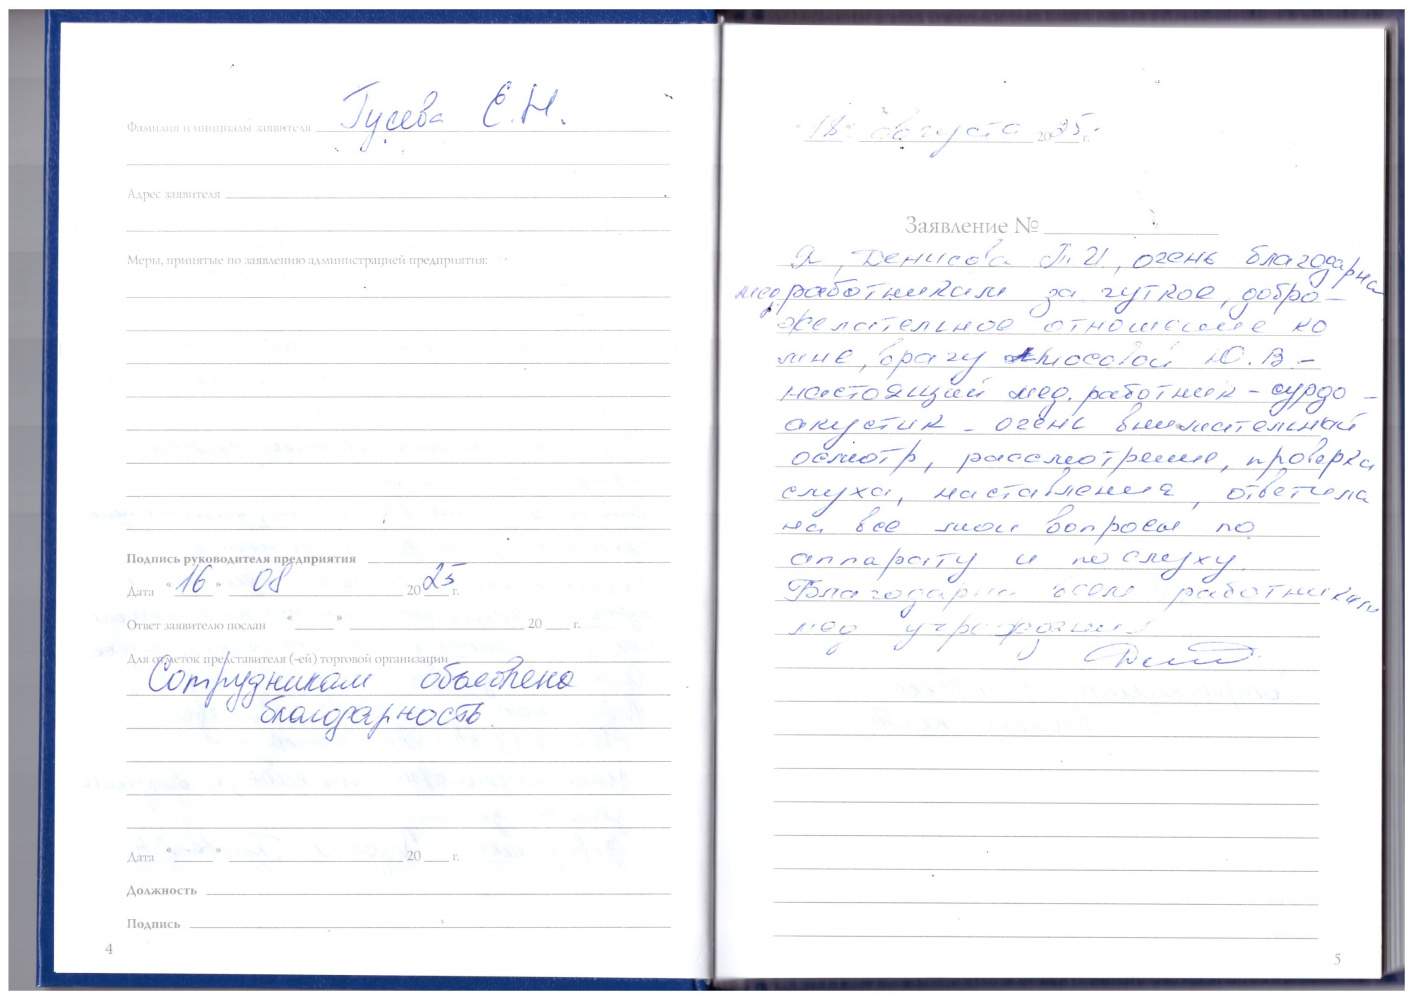 Фамилия и инициалы заявителя Гусева Е.Н.
Адрес заявителя
Меры, принятые по заявлению администрацией предприятия:
Подпись руководителя предприятия
Дата "16" 08 2025 г.
Ответ заявителю послан " " 20 г.
Для отметок представителя (-ей) торговой организации
Сотрудникам объявлена
благодарность.
Дата " " 20 г.
Должность
Подпись
4
"18" августа 2025 г.
Заявление №
Я, Денисова Т.И., очень благодарна
мед. работникам за чуткое, добро-
желательное отношение ко
мне, врачу Ю.В. -
настоящий мед. работник - сурдо-
акустик - очень внимательный
осмотр, рассмотрение, проверка
слуха, наставления, ответила
на все мои вопросы по
аппарату и по слуху.
Благодарна всем работникам
мед учреждения
5